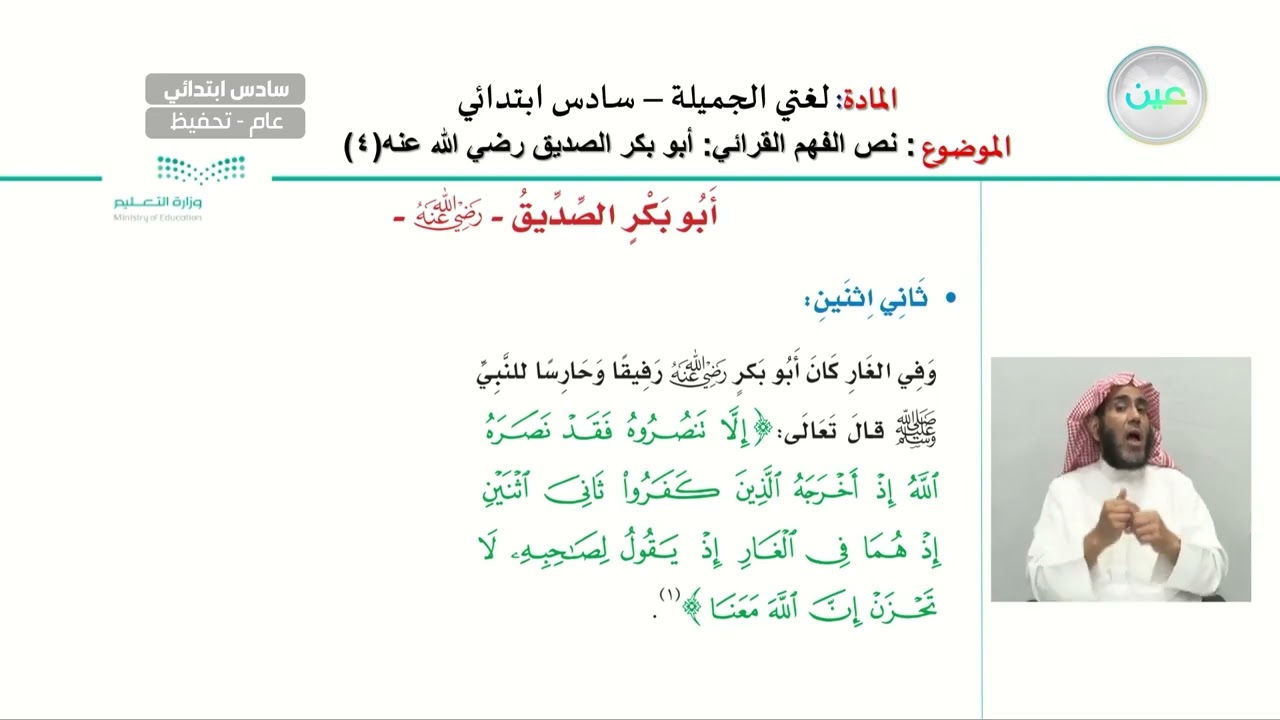 سادس ابتدائي
عام - تحفيظ
وزارة التعليم
Ministry of Education
عين
المادة: لغتي الجميلة – سادس ابتدائي
الموضوع : نص الفهم القرائي: أبو بكر الصديق رضي الله عنه(٤)
أَبُو بَكْرٍ الصِّدِّيقُ - رَضِيَ اللهُ عَنْهُ -
• ثَانِي اِثنَينِ:
وَفِي الغَارِ كَانَ أَبُو بَكرٍ رَضِيَ اللهُ عَنْهُ رَفِيقًا وَحَارِسًا للنَّبِيِّ
ﷺ قالَ تَعَالَى: ﴿إِلَّا تَنصُرُوهُ فَقَدۡ نَصَرَهُ
ٱللَّهُ إِذۡ أَخۡرَجَهُ ٱلَّذِينَ كَفَرُواْ ثَانِيَ ٱثۡنَيۡنِ
إِذۡ هُمَا فِي ٱلۡغَارِ إِذۡ يَقُولُ لِصَٰحِبِهِۦ لَا
تَحۡزَنۡ إِنَّ ٱللَّهَ مَعَنَا﴾(١).